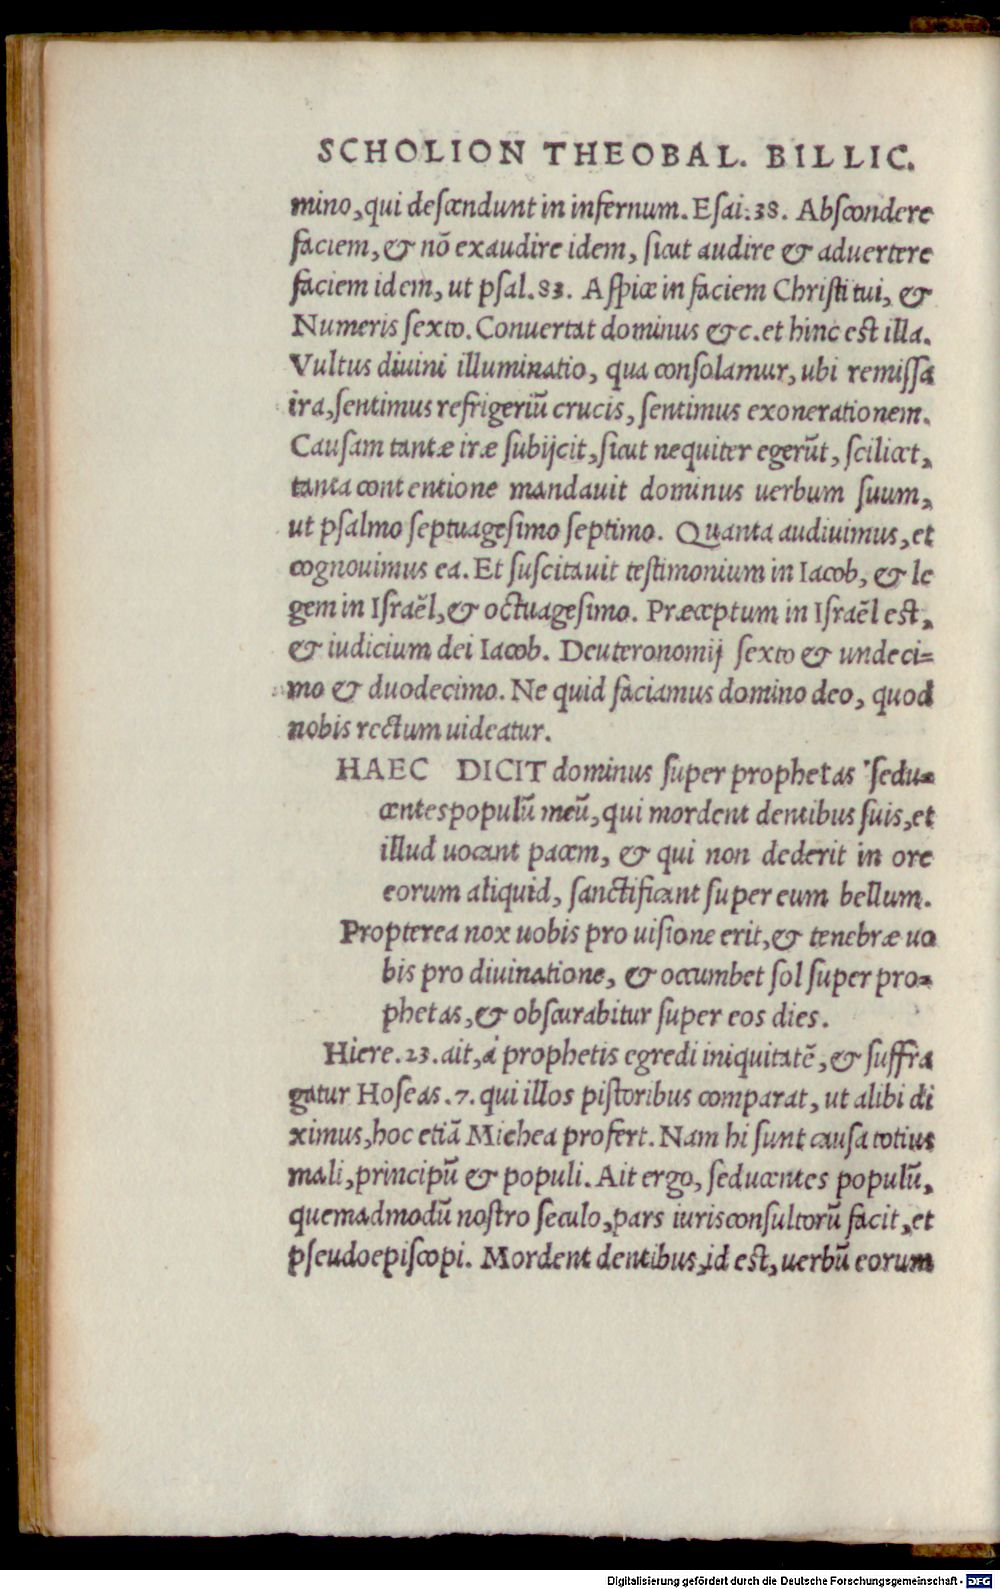 SCHOLION THEOBAL. BILLIC.
mino, qui descendunt in infernum. Esai. 38. Abscondere
faciem, & nō exaudire idem, sicut audire & aduertere
faciem idem, ut psal. 83. Aspice in faciem Christi tui, &
Numeris sexto. Conuertat dominus &c. et hinc est illa.
Vultus diuini illuminatio, qua consolamur, ubi remissa
ira, sentimus refrigeriū crucis, sentimus exonerationem.
Causam tantæ iræ subijcit, sicut nequiter egerūt, scilicet,
tanta contentione mandauit dominus uerbum suum,
ut psalmo septuagesimo septimo. Quanta audiuimus, et
cognouimus ea. Et suscitauit testimonium in Iacob, & le
gem in Israēl, & octuagesimo. Præceptum in Israēl est,
& iudicium dei Iacob. Deuteronomij sexto & undeci=
mo & duodecimo. Ne quid faciamus domino deo, quod
nobis rectum uideatur.
HAEC DICIT dominus super prophetas sedu=
centes populū meū, qui mordent dentibus suis, et
illud uocant pacem, & qui non dederit in ore
eorum aliquid, sanctificant super eum bellum.
Propterea nox uobis pro uisione erit, & tenebræ uo
bis pro diuinatione, & occumbet sol super pro=
phetas, & obscurabitur super eos dies.
Hiere. 23. ait, à prophetis egredi iniquitatē, & suffra
gatur Hoseas. 7. qui illos pistoribus comparat, ut alibi di
ximus, hoc etiā Michea profert. Nam hi sunt causa totius
mali, principū & populi. Ait ergo, seducentes populū,
quemadmodū nostro seculo, pars iurisconsultorū facit, et
pseudoepiscopi. Mordent dentibus, id est, uerbū eorum
Digitalisierung gefördert durch die Deutsche Forschungsgemeinschaft - DFG